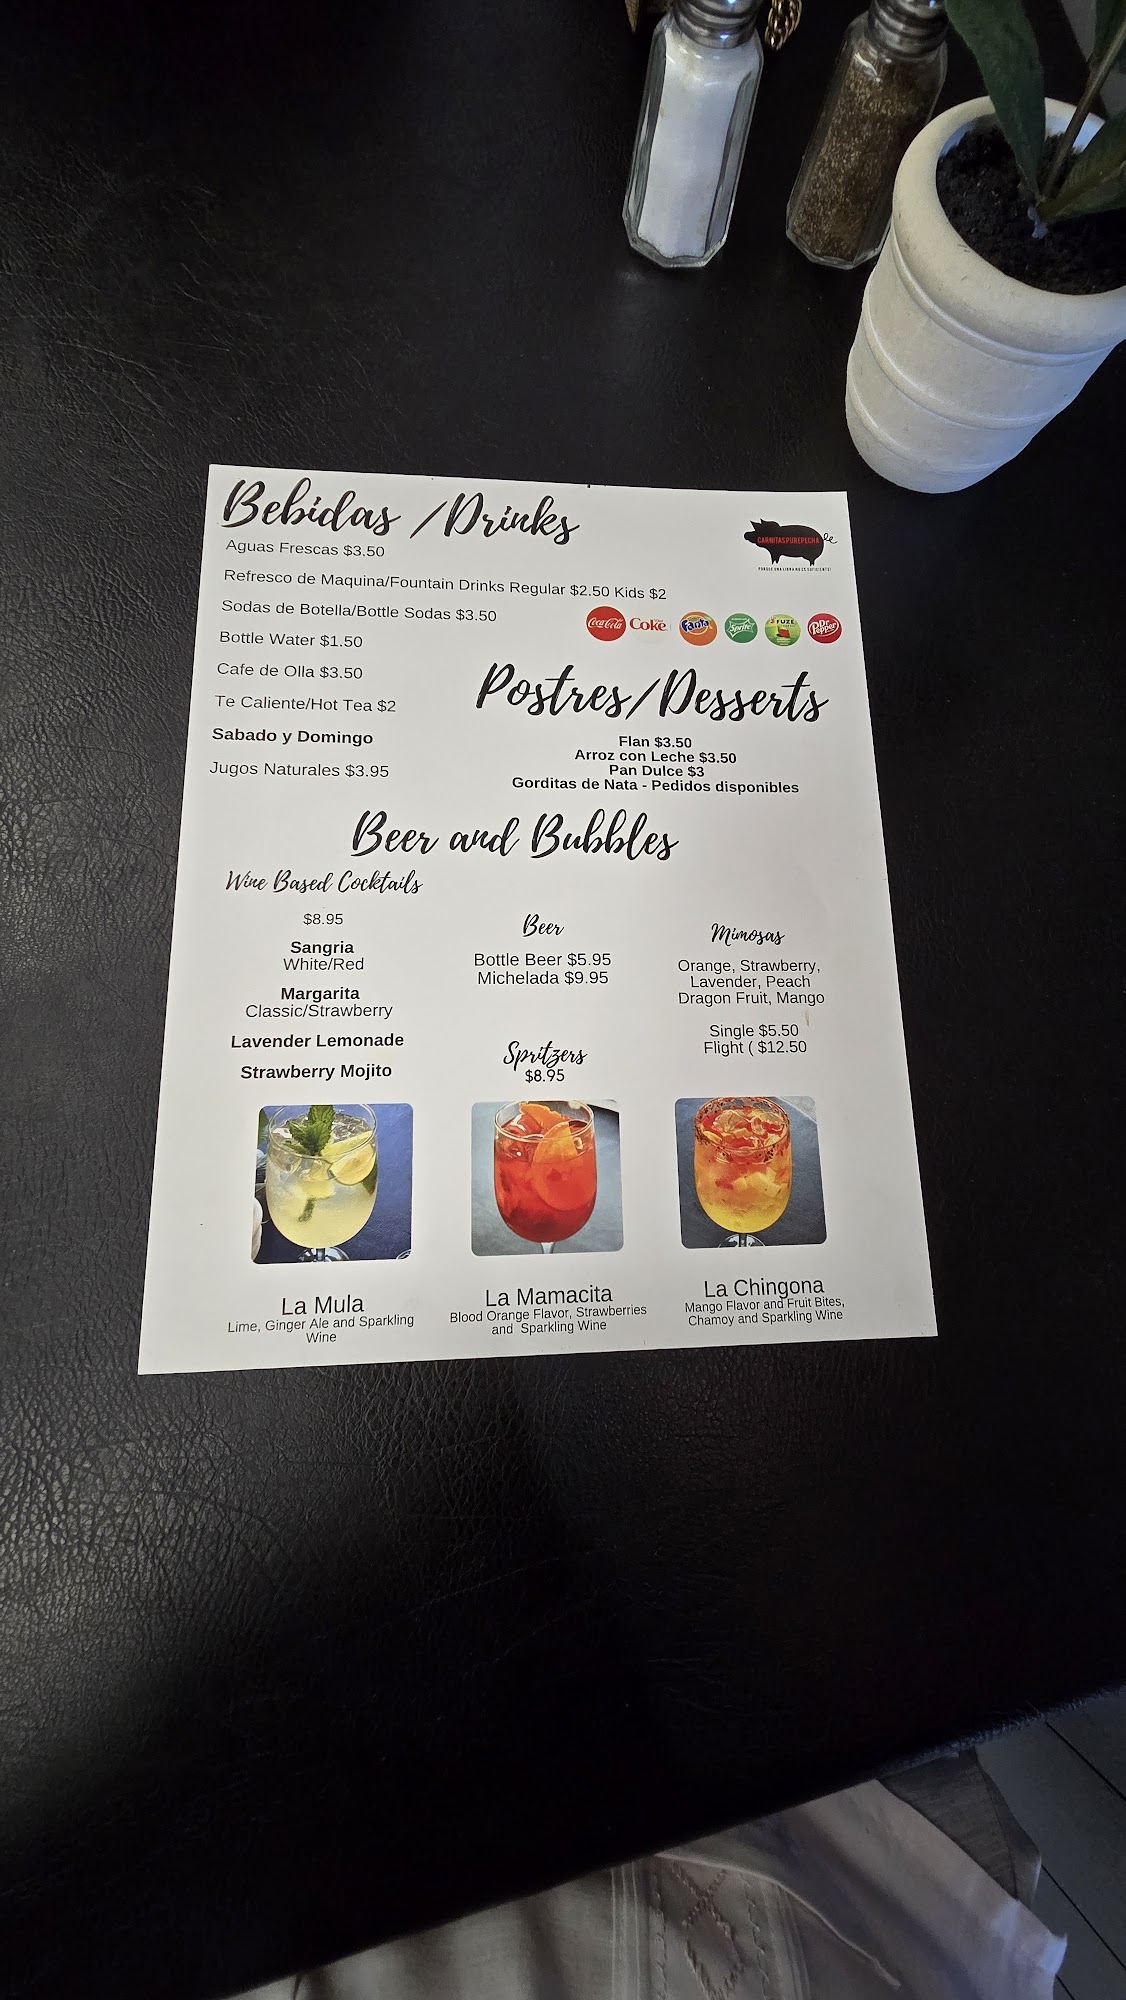 Bebidas /Drinks
Aguas Frescas $3.50
Refresco de Maquina/Fountain Drinks Regular $2.50 Kids $2
Sodas de Botella/Bottle Sodas $3.50
Bottle Water $1.50
Cafe de Olla $3.50
Te Caliente/Hot Tea $2
Sabado y Domingo
Jugos Naturales $3.95
CARNITAS PUREPECHA
PORQUE UNA LIBRA NO ES SUFICIENTE!
Coca-Cola Coke Fanta Sprite FUZE Dr Pepper
Postres/Desserts
Flan $3.50
Arroz con Leche $3.50
Pan Dulce $3
Gorditas de Nata - Pedidos disponibles
Beer and Bubbles
Wine Based Cocktails
$8.95
Sangria
White/Red
Margarita
Classic/Strawberry
Lavender Lemonade
Strawberry Mojito
Beer
Bottle Beer $5.95
Michelada $9.95
Mimosas
Orange, Strawberry,
Lavender, Peach
Dragon Fruit, Mango
Single $5.50
Flight ( $12.50
Spritzers
$8.95
La Mula
Lime, Ginger Ale and Sparkling
Wine
La Mamacita
Blood Orange Flavor, Strawberries
and Sparkling Wine
La Chingona
Mango Flavor and Fruit Bites,
Chamoy and Sparkling Wine